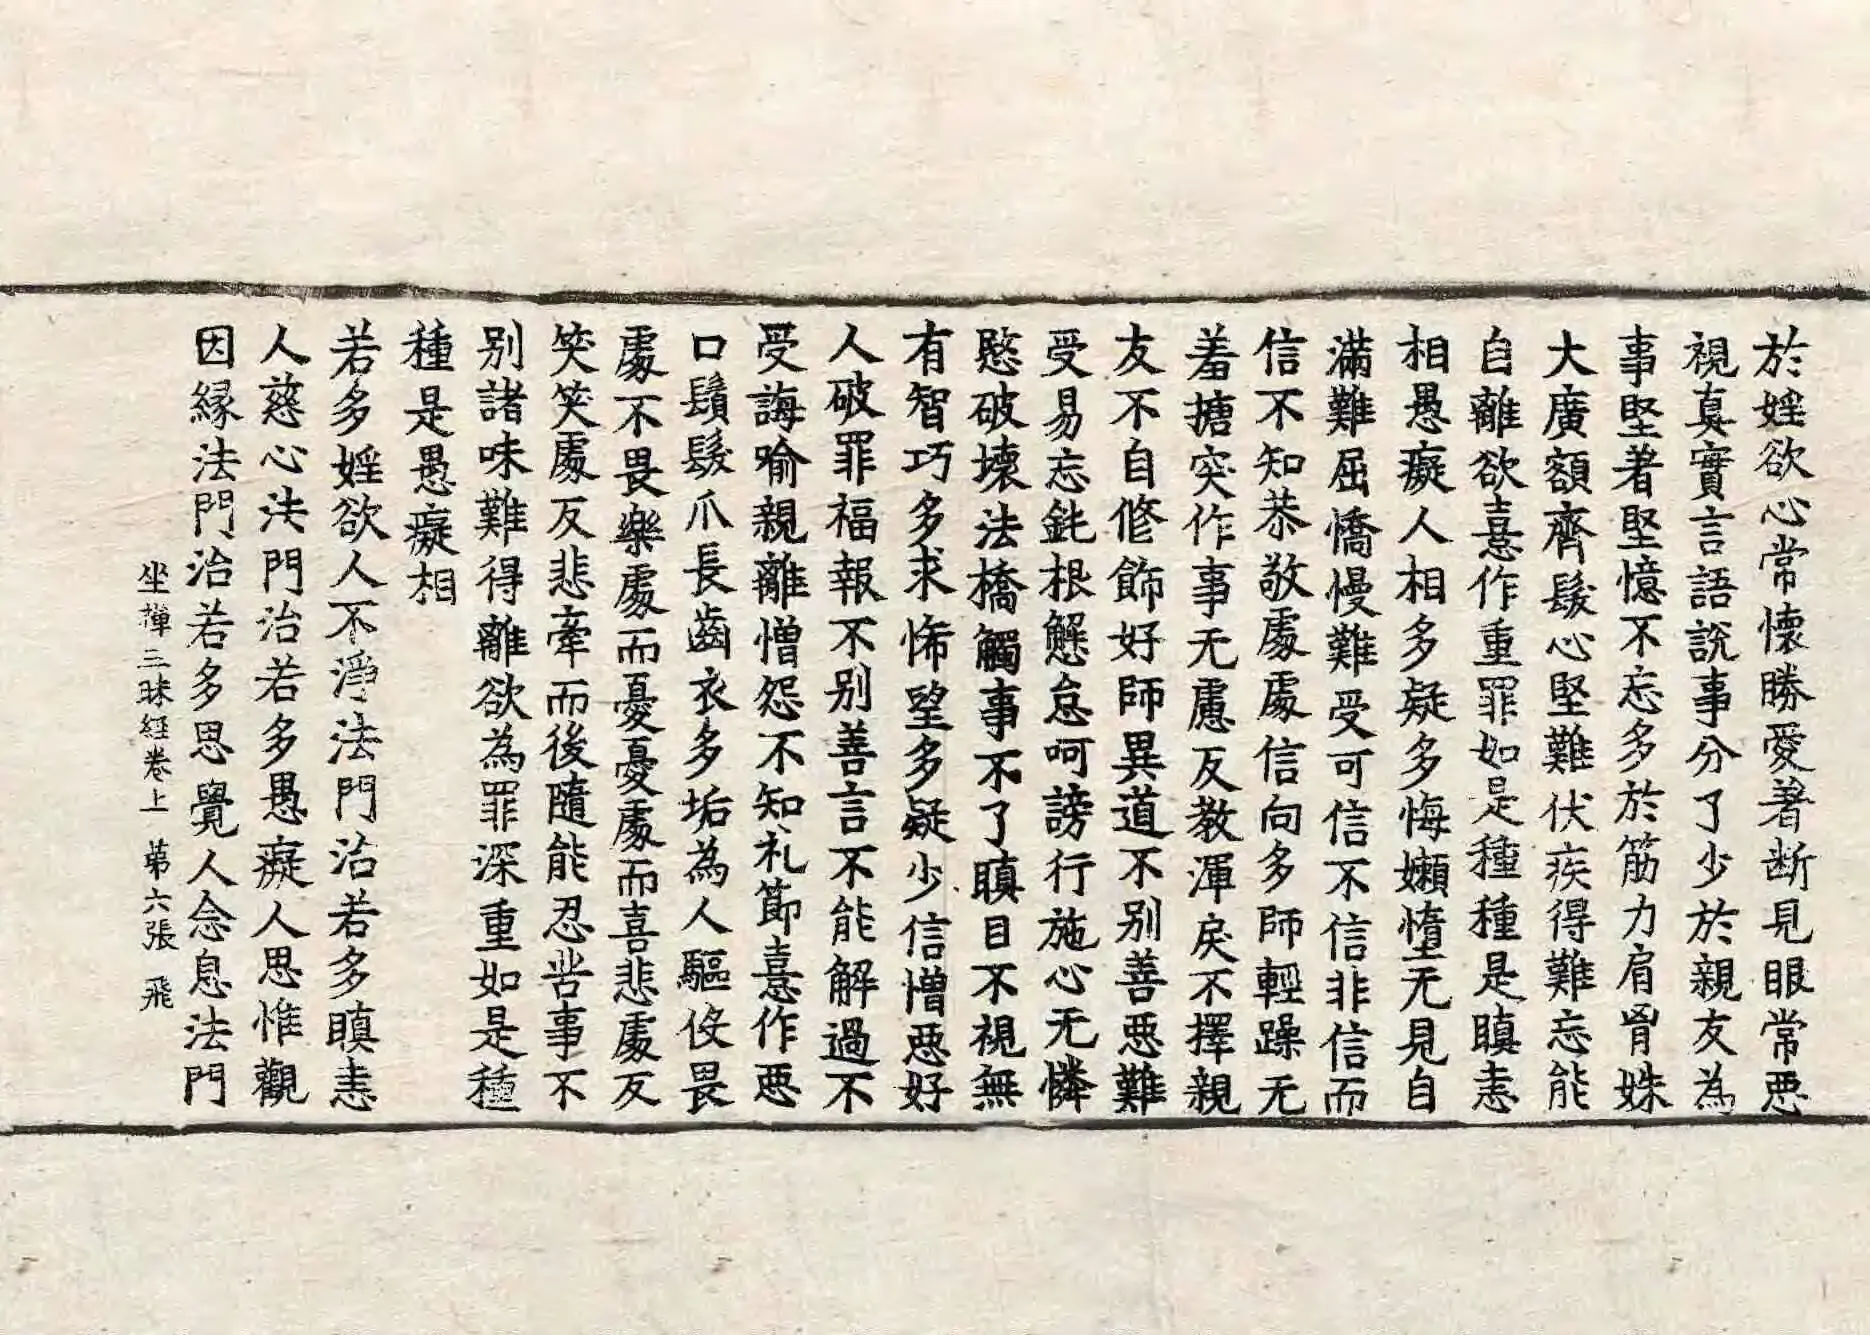 於婬欲心常懷勝愛著断見眼常惡
視真實言語說事分了少於親友為
事堅著堅憶不忘多於筋力肩胷姝
大廣額齊髮心堅難伏疾得難忘能
自離欲憙作重罪如是種種是瞋恚
相愚癡人相多疑多悔嬾墮无見自
滿難屈憍慢難受可信不信非信而
信不知恭敬處處信向多師輕躁无
羞搪突作事无慮反教渾戾不擇親
友不自修飾好師異道不别善惡難
受易忘鈍根懈怠呵謗行施心无憐
愍破壞法橋觸事不了瞋目不視無
有智巧多求悕望多疑少信憎惡好
人破罪福報不别善言不能解過不
受誨喻親離憎怨不知礼節憙作惡
口鬚髮爪長齒衣多垢為人驅役畏
處不畏樂處而憂憂處而喜悲處反
笑笑處反悲牽而後隨能忍苦事不
别諸味難得離欲為罪深重如是種
種是愚癡相
若多婬欲人不淨法門治若多瞋恚
人慈心法門治若多愚癡人思惟觀
因緣法門治若多思覺人念息法門
坐禪三昧經卷上 第六張 飛